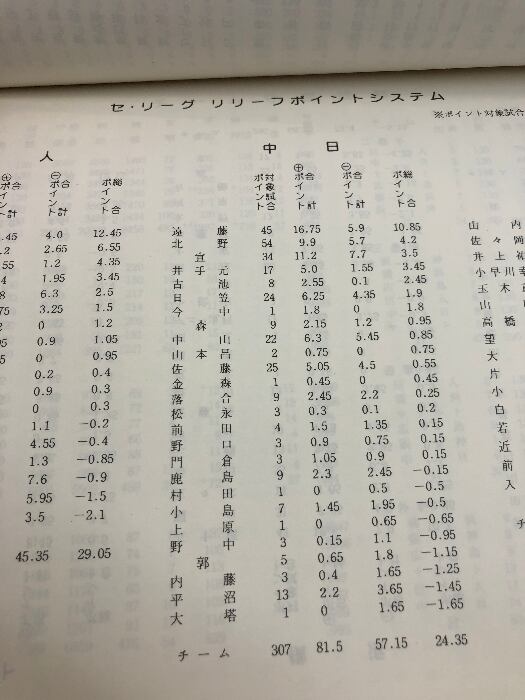 セ・リーグ リリーフポイントシステム
※ポイント対象試合
人
⊕ポイント合計
⊖ポイント合計
ポイント総合
.45 4.0 12.45
.2 2.65 6.55
.55 1.2 4.35
4 1.95 3.45
8 6.3 2.5
75 3.25 1.5
2 0 1.2
05 0.9 1.05
5 0 0.95
0.2 0.4
0.9 0.3
0 0.3
1.1 −0.2
4.55 −0.4
1.3 −0.85
7.6 −0.9
5.95 −1.5
3.5 −2.1
45.35 29.05
中日
ポイント対象試合
⊕ポイント合計
⊖ポイント合計
ポイント総合
遠藤 45 16.75 5.9 10.85
北野 54 9.9 5.7 4.2
宣 34 11.2 7.7 3.5
井手元 17 5.0 1.55 3.45
古池 8 2.55 0.1 2.45
日笠 24 6.25 4.35 1.9
今中 1 1.8 0 1.8
森 9 2.15 1.2 0.95
中山 22 6.3 5.45 0.85
山本昌 2 0.75 0 0.75
佐藤 25 5.05 4.5 0.55
金森 1 0.45 0 0.45
落合 9 2.45 2.2 0.25
松永 3 0.3 0.1 0.2
前田 4 1.5 1.35 0.15
野口 3 0.9 0.75 0.15
門倉 3 1.05 0.9 0.15
鹿島 9 2.3 2.45 −0.15
村田 1 0 0.5 −0.5
小島 7 1.45 1.95 −0.5
上原 1 0 0.65 −0.65
野中 3 0.15 1.1 −0.95
郭 5 0.65 1.8 −1.15
内藤 3 0.4 1.65 −1.25
平沼 13 2.2 3.65 −1.45
大塔 1 0 1.65 −1.65
チーム 307 81.5 57.15 24.35
山内
佐々岡
井上
小早川
玉木
山
高橋
望
大
片
小
白
若
近
前
入
チ